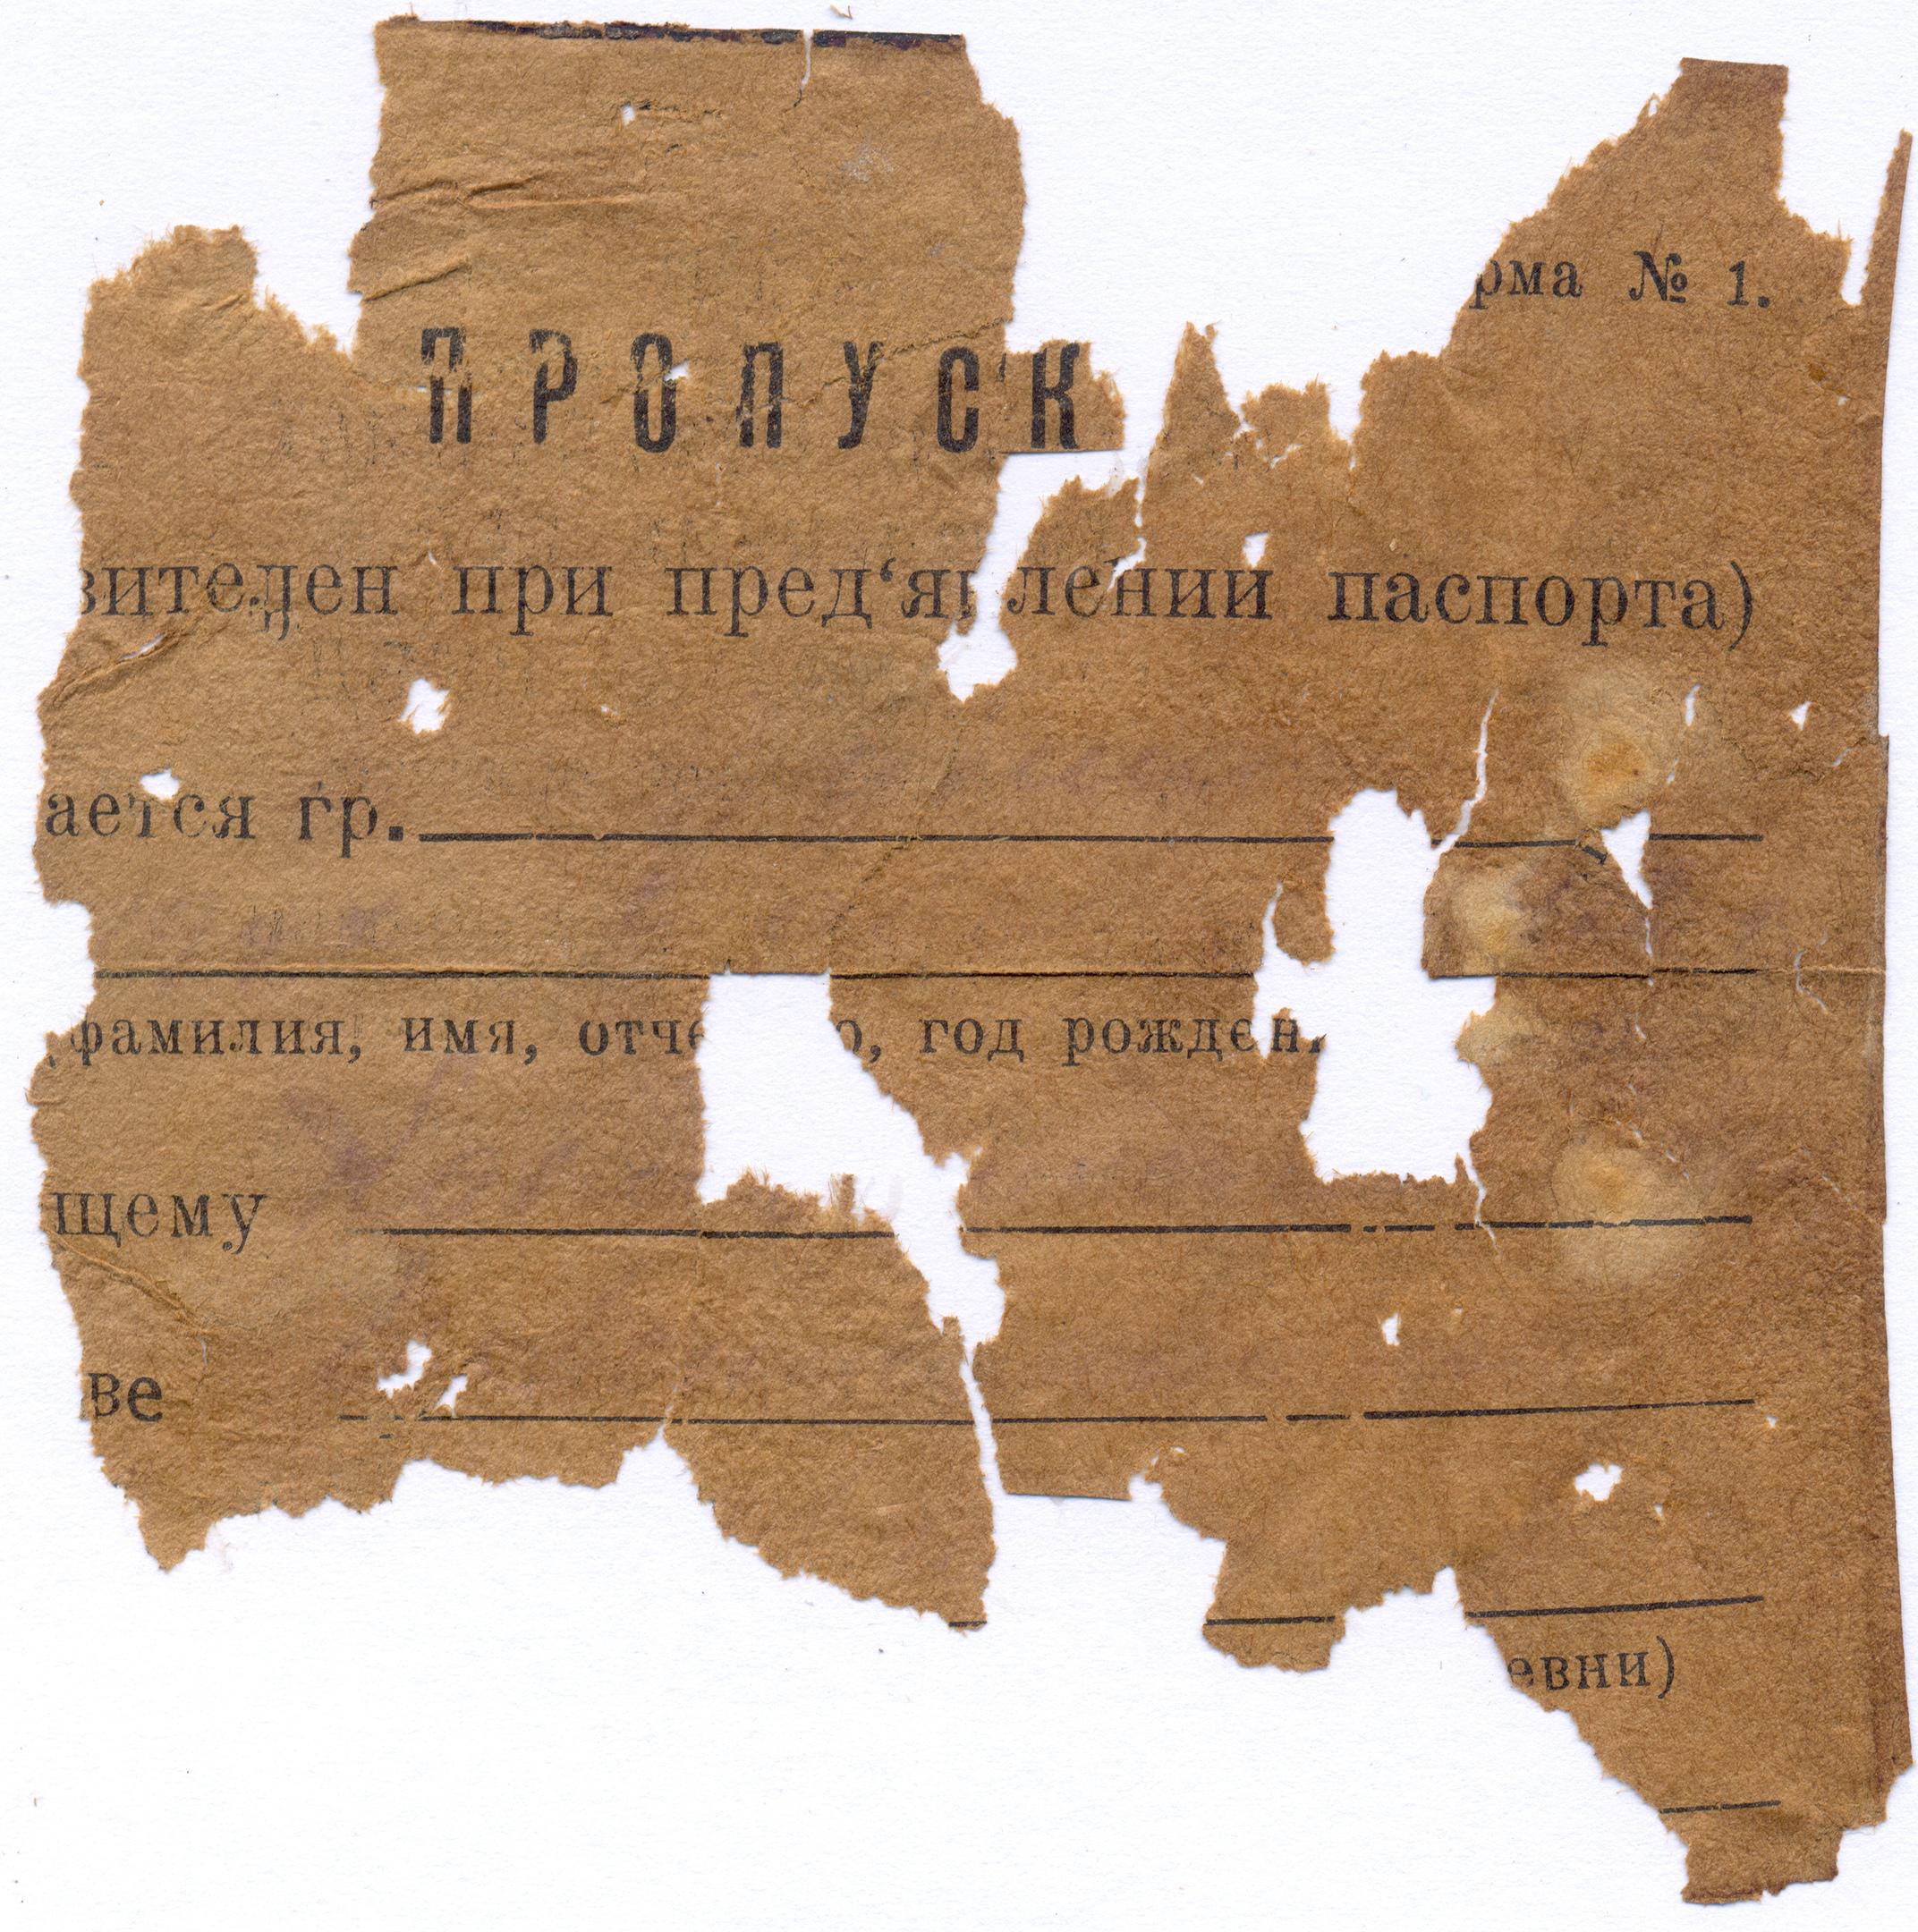 рма № 1.
ПРОПУСК
вителен при пред‘явлении паспорта)
ается гр.
фамилия, имя, отче о, год рожден
щему
ве
евни)